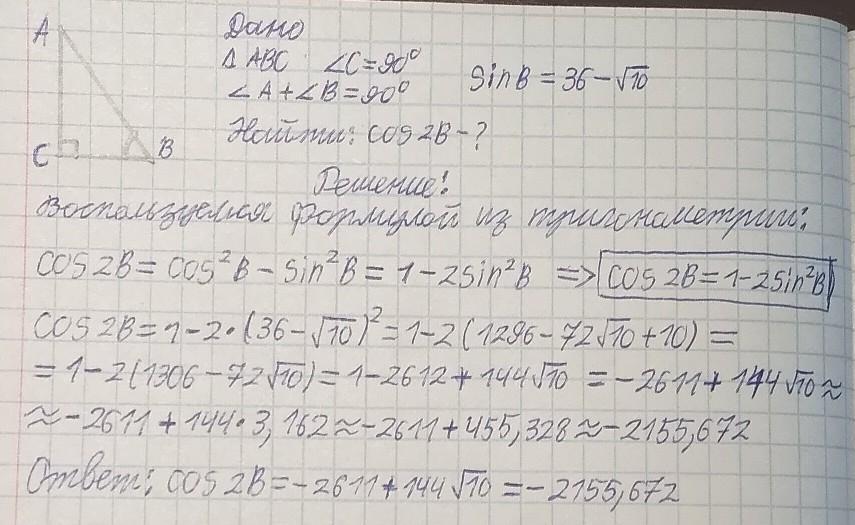 Дано
A
Δ ABC ∠C=90°
∠A+∠B=90° sinB=36-√10
Найти: cos2B-?
C B
Решение:
Воспользуемся формулой из тригонометрии:
cos2B=cos²B-sin²B=1-2sin²B => cos2B=1-2sin²B
cos2B=1-2·(36-√10)²=1-2(1296-72√10+10)=
=1-2(1306-72√10)=1-2612+144√10 =-2611+144√10≈
≈-2611+144·3,162≈-2611+455,328≈-2155,672
Ответ: cos2B=-2611+144√10=-2155,672